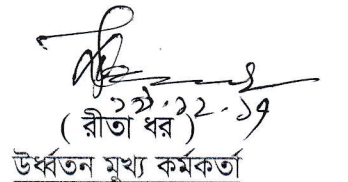 ১৯.১২.১৭
( রীতা ধর )
উর্ধ্বতন মুখ্য কর্মকর্তা